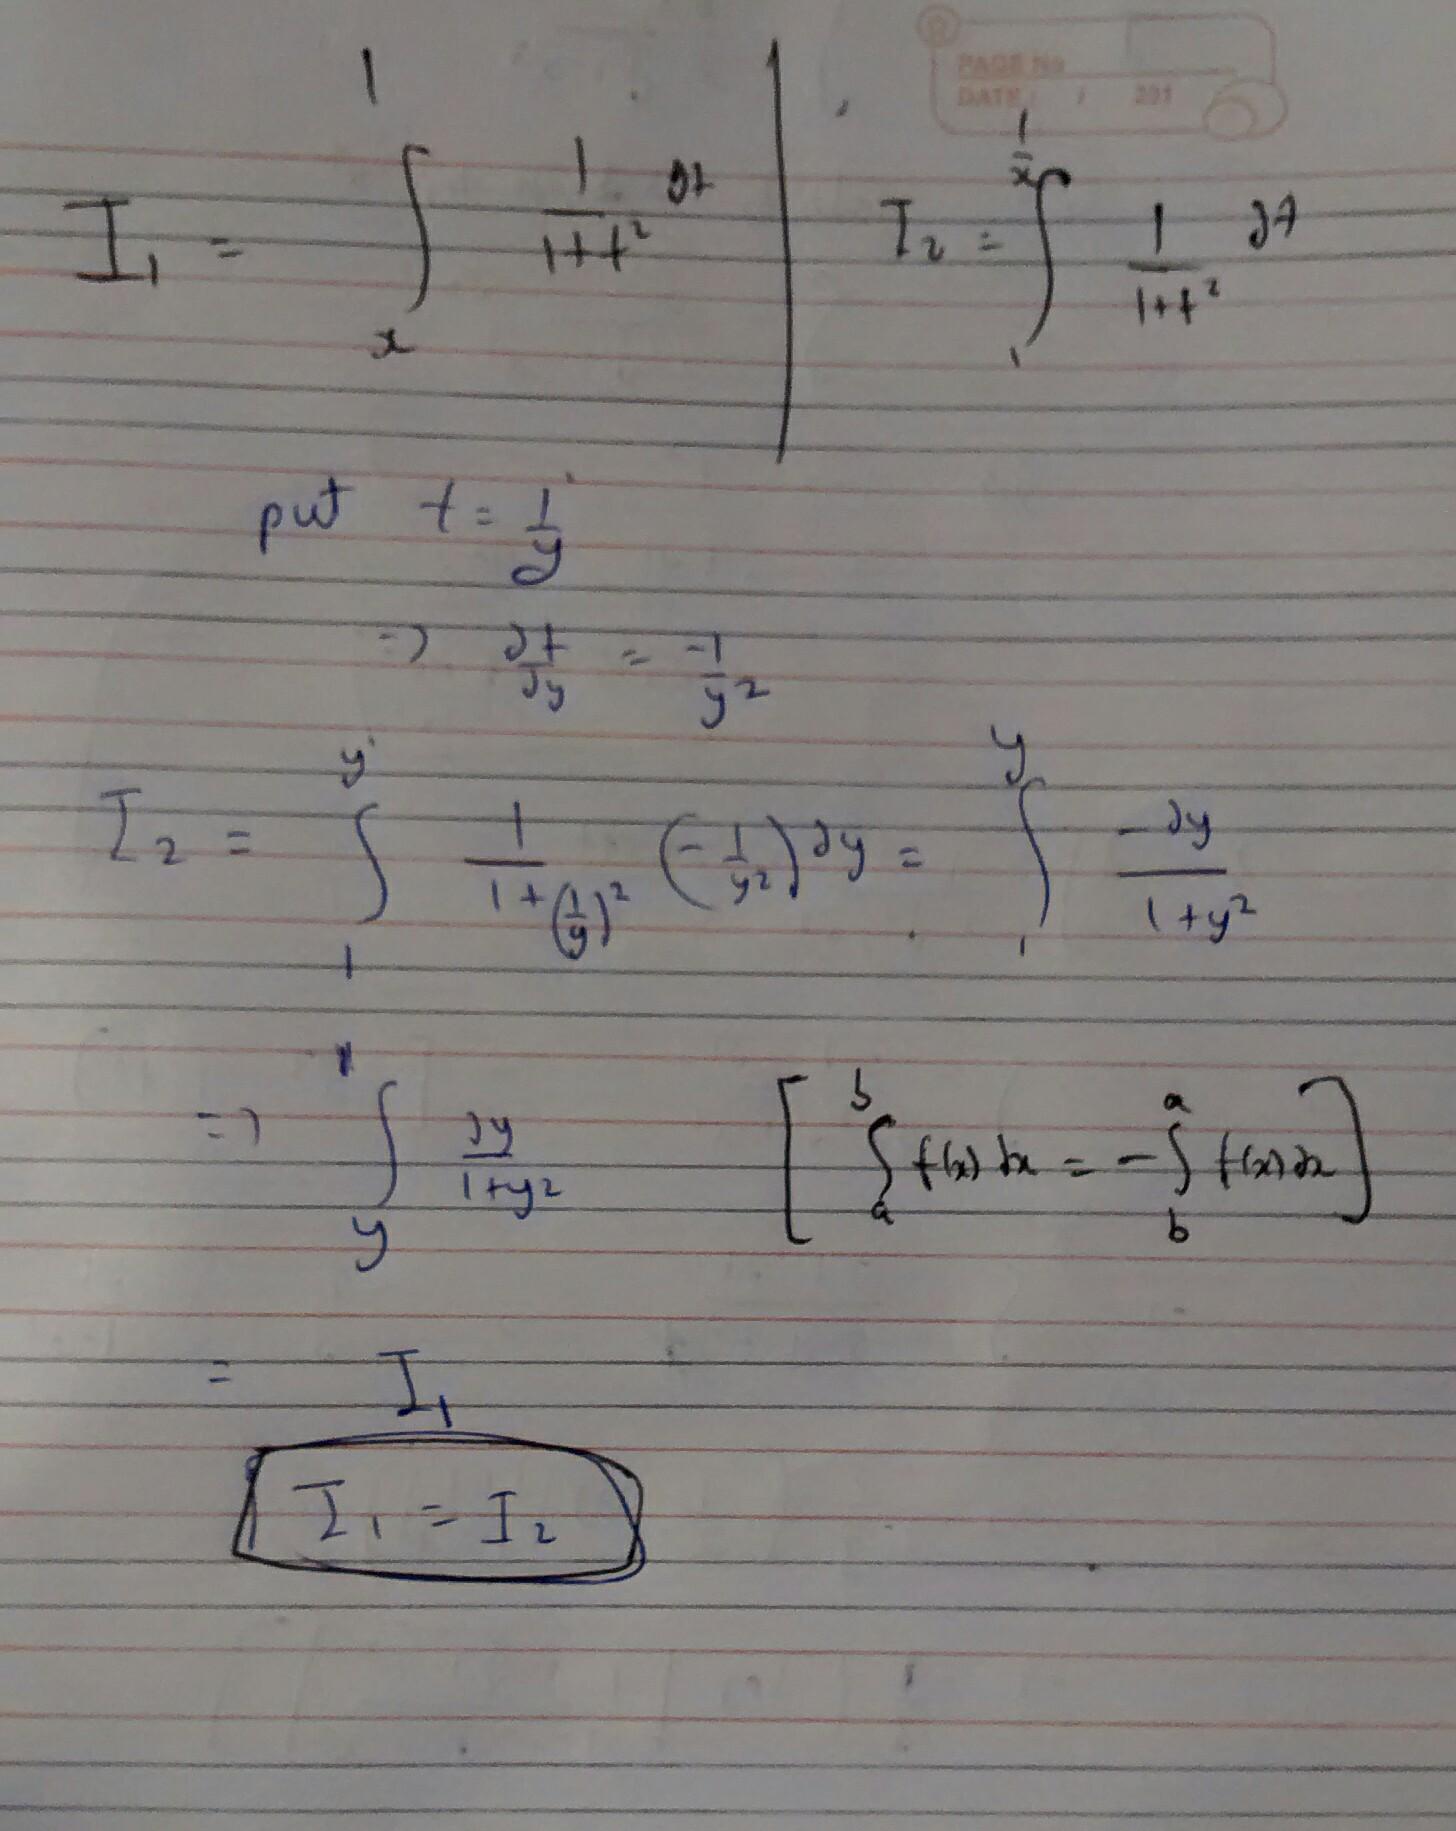 PAGE No
DATE / / 201
I₁ = ∫ₓ¹ 1/(1+t²) dt | I₂ = ∫₁^(1/x) 1/(1+t²) dt
put t = 1/y
=> dt/dy = -1/y²
I₂ = ∫₁^y 1/(1+(1/y)²) (-1/y²) dy = ∫₁^y -dy/(1+y²)
=> ∫_y^1 dy/(1+y²) [∫ₐᵇ f(x) dx = -∫_b^a f(x) dx]
= I₁
I₁ = I₂